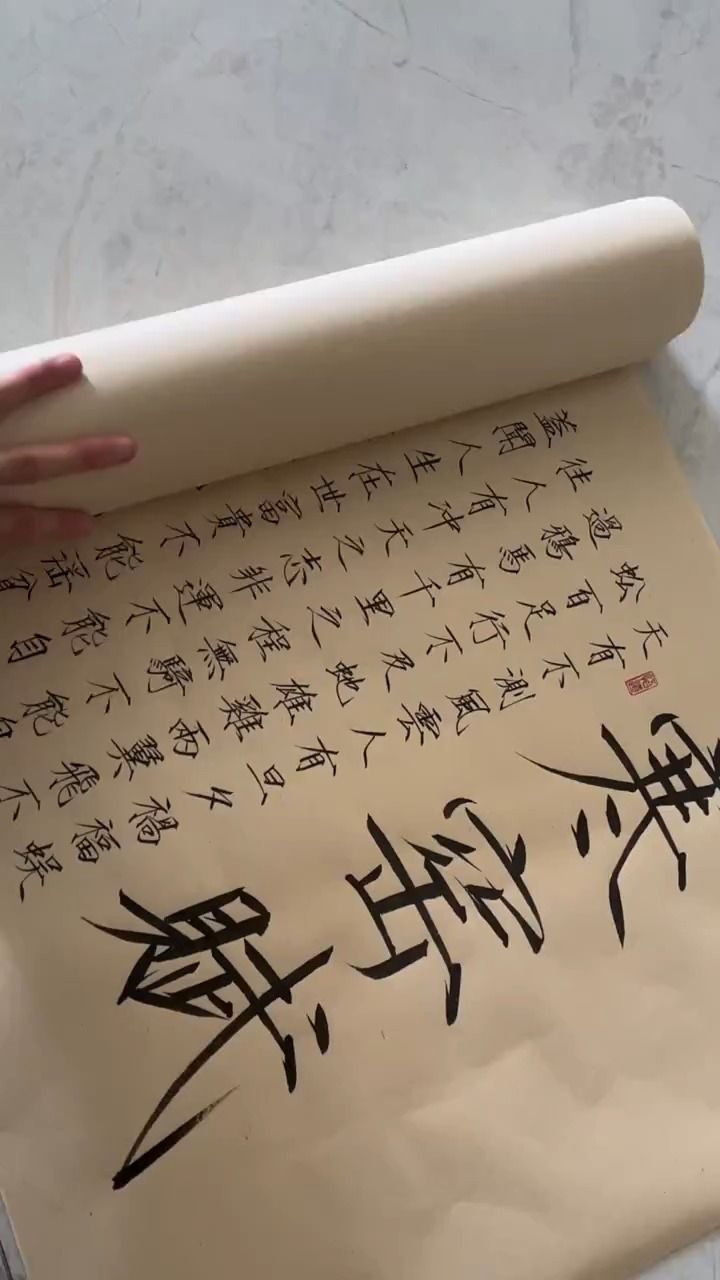 寒窑賦
天有不測風雲人有旦夕禍福蜈
蚣百足行不及蛇雄雞兩翼飛不
過鴉馬有千里之程無騎不能自
往人有沖天之志非運不能自
蓋聞人生在世富貴不能淫貧